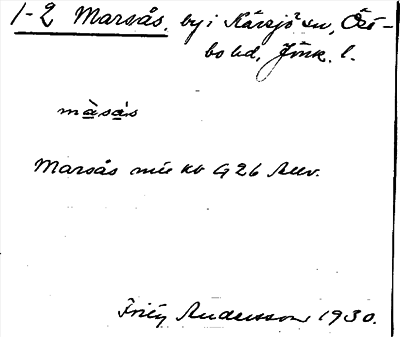 1-2 Marsås, by i Kävsjö sn, Öst-
bo hd, Jönk. l.
màsás
Marsås nie kb G 26 Allv.
Andersson 1930.